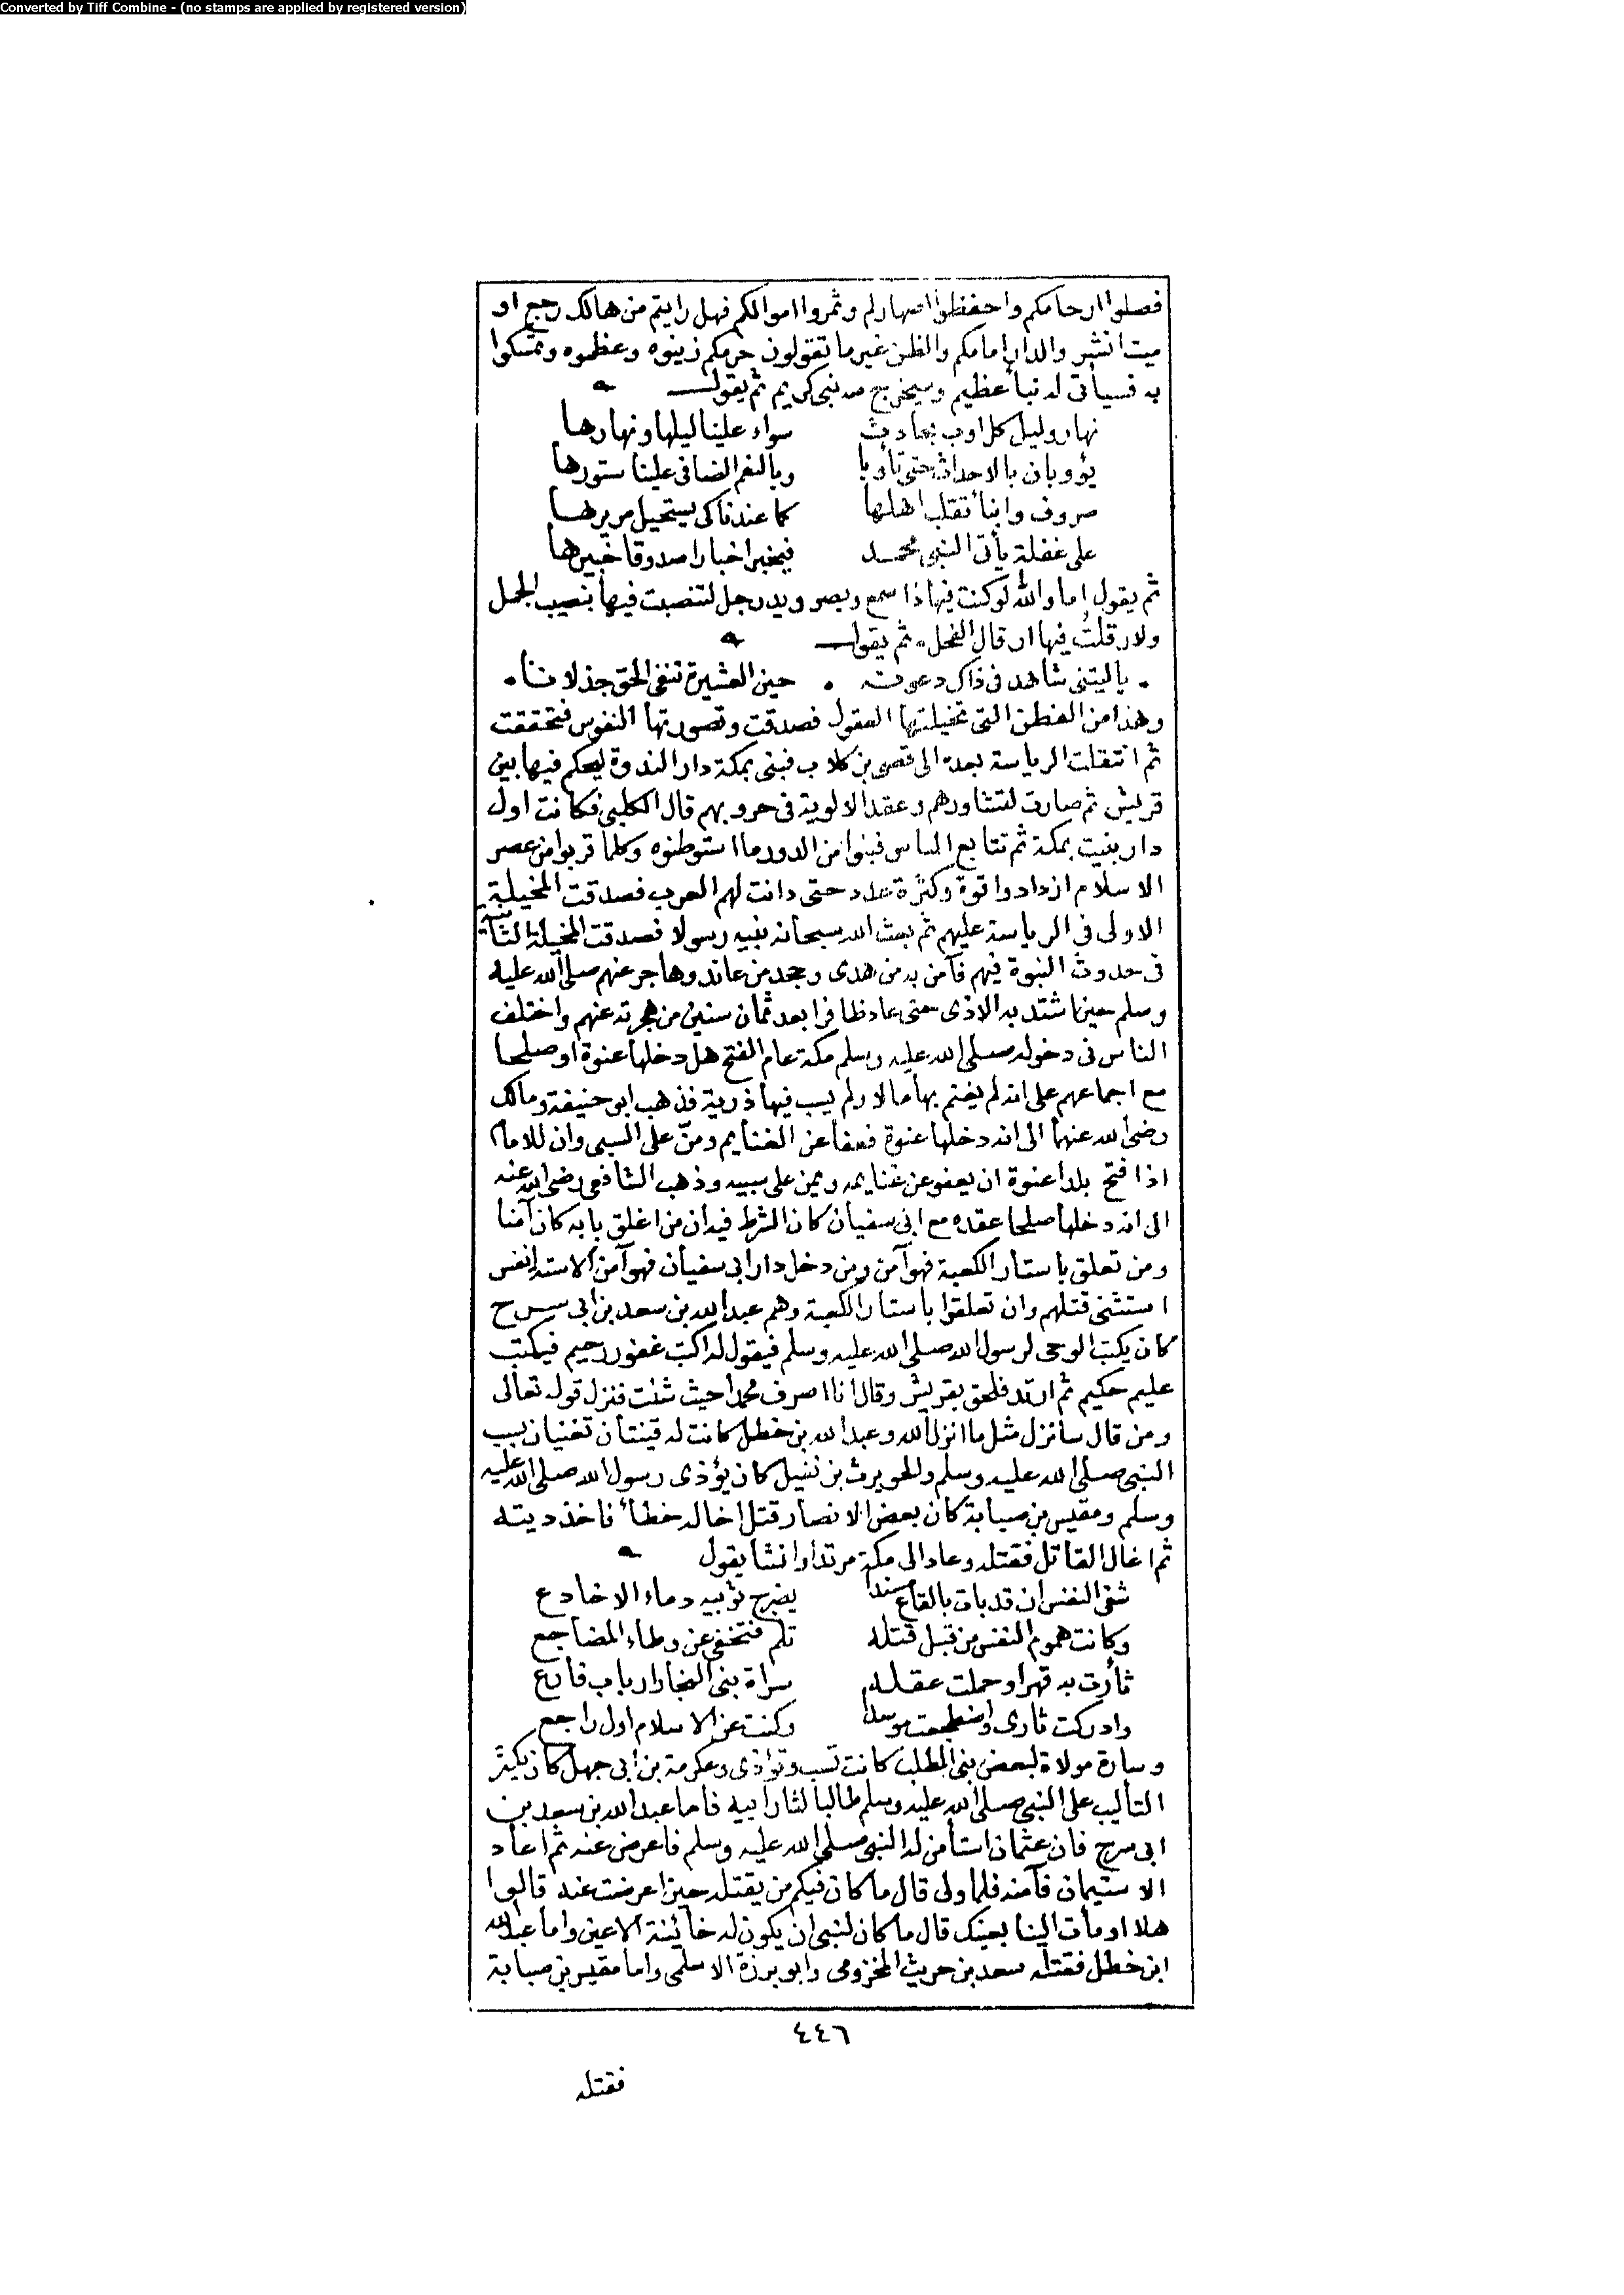 Converted by Tiff Combine - (no stamps are applied by registered version)
فصلوا ارحامكم واحفظوا اصهاركم وثمروا اموالكم فهل رايتم من هالك رجع او
ميت انشر والدار امامكم والظن غير ما تقولون حرمكم زينوه وعظموه وتمسكوا
به فسيأتى له نبأ عظيم وسيخرج منه نبى كريم ثم يقول
نهار وليل كل اوب بحادث سواء علينا ليلها ونهارها
يؤوبان بالاحداث حتى تأوبا وبالنعم الضافى علينا ستورها
صروف وانباء تقلب اهلها كما عندنا كى يستحيل مريرها
على غفلة يأتى النبى محمد فيخبر اخبارا صدوقا خبيرها
ثم يقول اما والله لو كنت فيها ذا سمع وبصر ويد ورجل لتنصبت فيها بنصيب الجمل
ولارقلت فيها ارقال الفحل ثم يقول
ياليتنى شاهد فى ذاك دعوته حين العشيرة تنفى الحق جذلانا
وهذا من الفطن التى تخيلتها العقول فصدقت وتصورتها النفوس فتحققت
ثم انتقلت الرياسة بعده الى قصى بن كلاب فبنى بمكة دار الندوة ليحكم فيها بين
قريش ثم صارت لتشاورهم وعقد الالوية فى حروبهم قال الكلبى فكانت اول
دار بنيت بمكة ثم تتابع الناس فبنوا من الدور ما استوطنوه وكلما قربوا من عصر
الاسلام ازدادوا قوة وكثرة عدد حتى دانت لهم العرب فصدقت المخيلة
الاولى فى الرياسة عليهم ثم بعث الله سبحانه نبيه رسولا فصدقت المخيلة الثانية
فى حدوث النبوة فيهم فآمن به من هدى وجحد من عاند وهاجر عنهم صلى الله عليه
وسلم حين اشتد به الاذى حتى عاد ظافرا بعد ثمان سنين من هجرته عنهم واختلف
الناس فى دخوله صلى الله عليه وسلم مكة عام الفتح هل دخلها عنوة او صلحا
مع اجماعهم على انه لم يغنم بها مالا ولم يسب فيها ذرية فذهب ابو حنيفة ومالك
رضى الله عنهما الى انه دخلها عنوة فعفا عن الغنايم ومن على السبى وان للامام
اذا فتح بلدا عنوة ان يعفو عن غنايمه ويمن على سبيه وذهب الشافعى رضى الله عنه
الى انه دخلها صلحا عقده مع ابى سفيان كان الشرط فيه ان من اغلق بابه كان آمنا
ومن تعلق باستار الكعبة فهو آمن ومن دخل دار ابى سفيان فهو آمن الا ستة انفس
استثنى قتلهم وان تعلقوا باستار الكعبة وهم عبد الله بن سعد بن ابى سرح
كان يكتب الوحى لرسول الله صلى الله عليه وسلم فيقول له اكتب غفور رحيم فيكتب
عليم حكيم ثم ارتد فلحق بقريش وقال انا اصرف محمدا حيث شئت فنزل قوله تعالى
ومن قال سانزل مثل ما انزل الله وعبد الله بن خطل كانت له قينتان تغنيان بسب
النبى صلى الله عليه وسلم والحويرث بن نفيل كان يؤذى رسول الله صلى الله عليه
وسلم ومقيس بن صبابة كان بعض الانصار قتل اخا له خطأ فاخذ ديته
ثم اغال القاتل فقتله وعاد الى مكة مرتدا وانشا يقول
شفى النفس ان قد بات بالقاع مسندا يضرج ثوبيه دماء الاخادع
وكانت هموم النفس من قبل قتله تلم فتحنفى عن وطاء المضاجع
ثأرت به قهرا وحملت عقله سراة بنى النجار ارباب فارع
وادركت ثارى واضطجعت موسدا وكنت عن الاسلام اول راجع
وسارة مولاة لبعض بنى المطلب كانت تسب وتؤذى وعكرمة بن ابى جهل كان يكثر
التأليب على النبى صلى الله عليه وسلم طالبا لثار ابيه فاما عبد الله بن سعد بن
ابى سرح فان عثمان استأمن له النبى صلى الله عليه وسلم فاعرض عنه ثم اعاد
الاستيمان فآمنه فلما ولى قال ما كان فيكم من يقتله حين اعرضت عنه قالوا
هلا اومأت الينا بعينك قال ما كان لنبى ان يكون له خائنة الاعين واما عبد الله
ابن خطل فقتله سعد بن حريث المخزومى وابو برزة الاسلمى واما مقيس بن صبابة
٤٤٦
فقتله